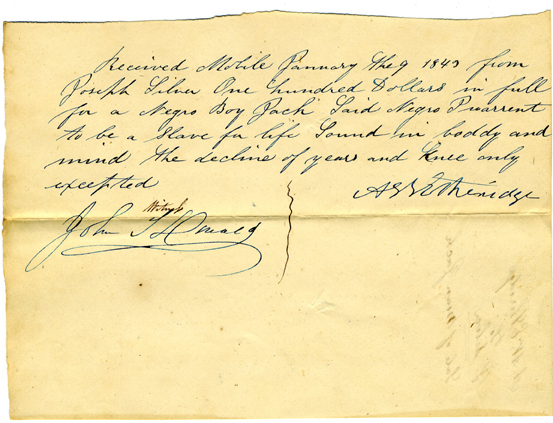 Received Mobile January the 9 1849 from
Joseph Silver One hundred Dollars in full
for a Negro Boy Jack Said Negro I warrent
to be a Slave for life Sound in boddy and
mind the decline of years and Knee only
excepted
Etheridge
John